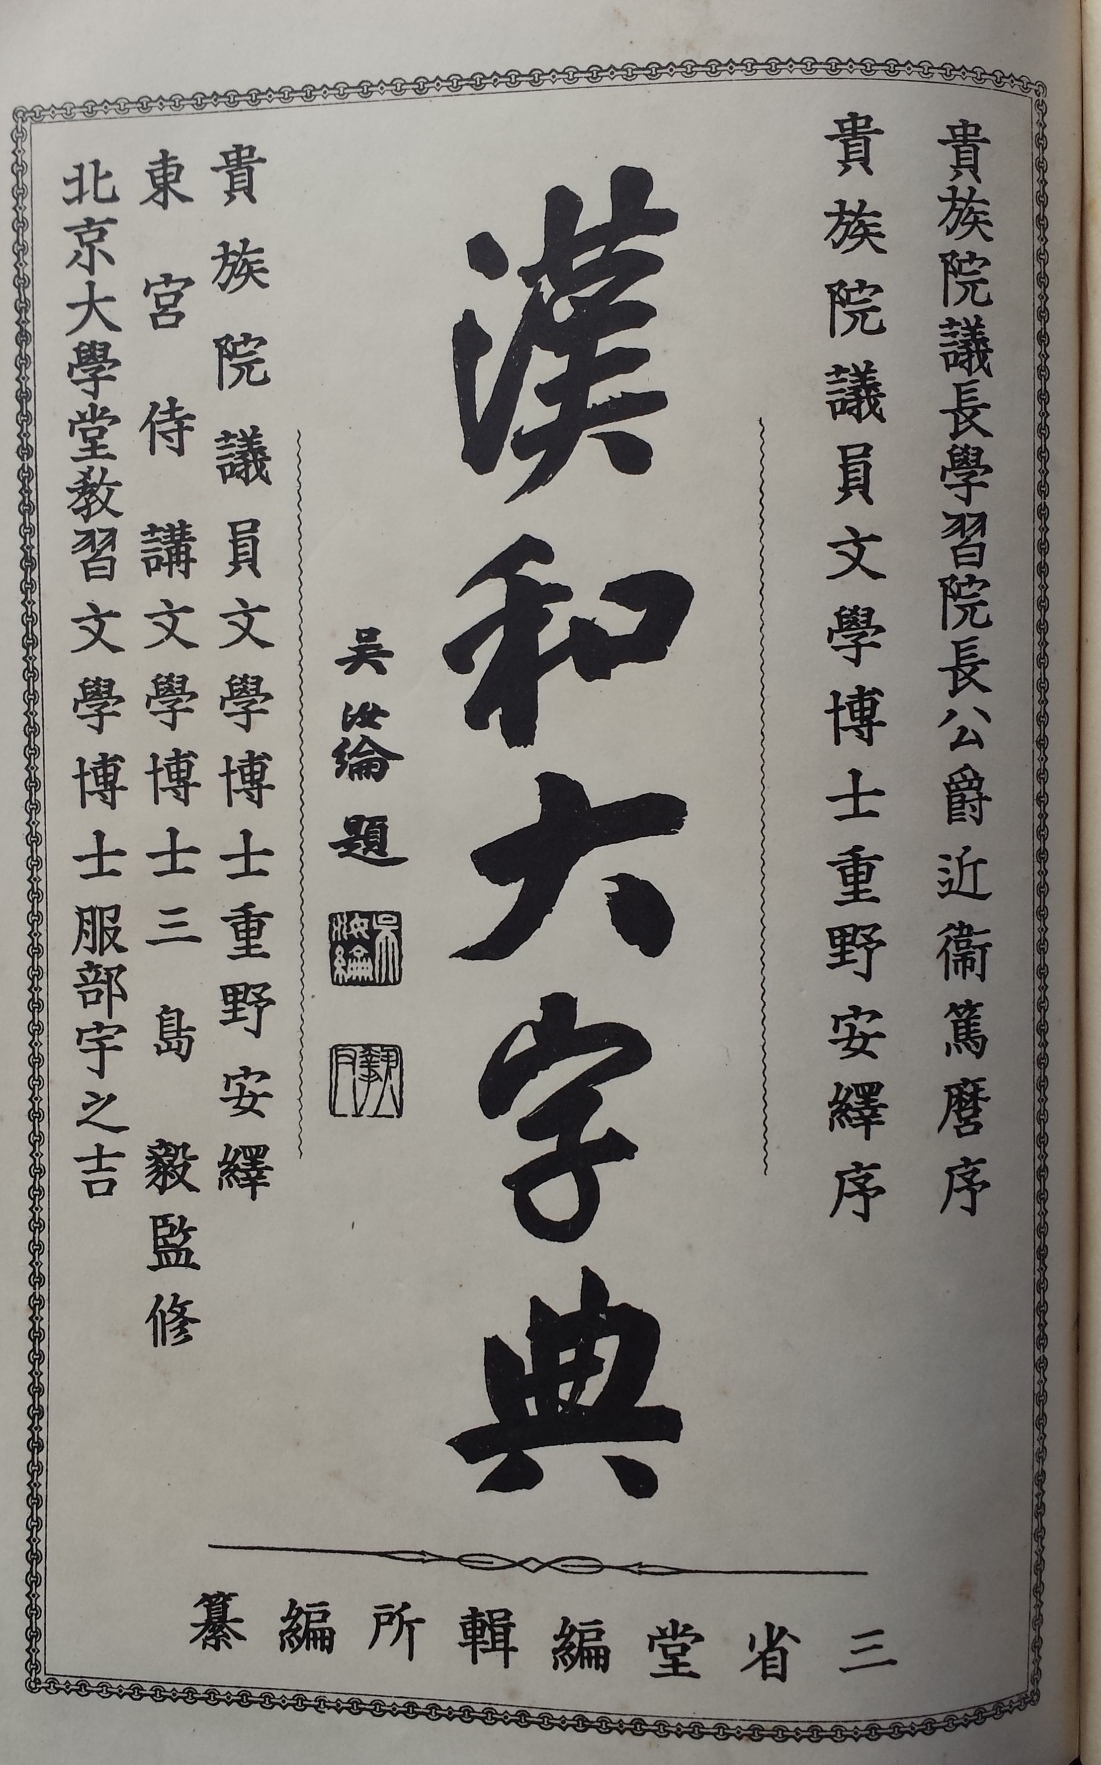 貴族院議長學習院長公爵近衞篤麿序
貴族院議員文學博士重野安繹序
漢和大字典
吳汝綸題
吳汝綸
貴族院議員文學博士重野安繹
東宮侍講文學博士三島毅監修
北京大學堂教習文學博士服部宇之吉
三省堂編輯所編纂